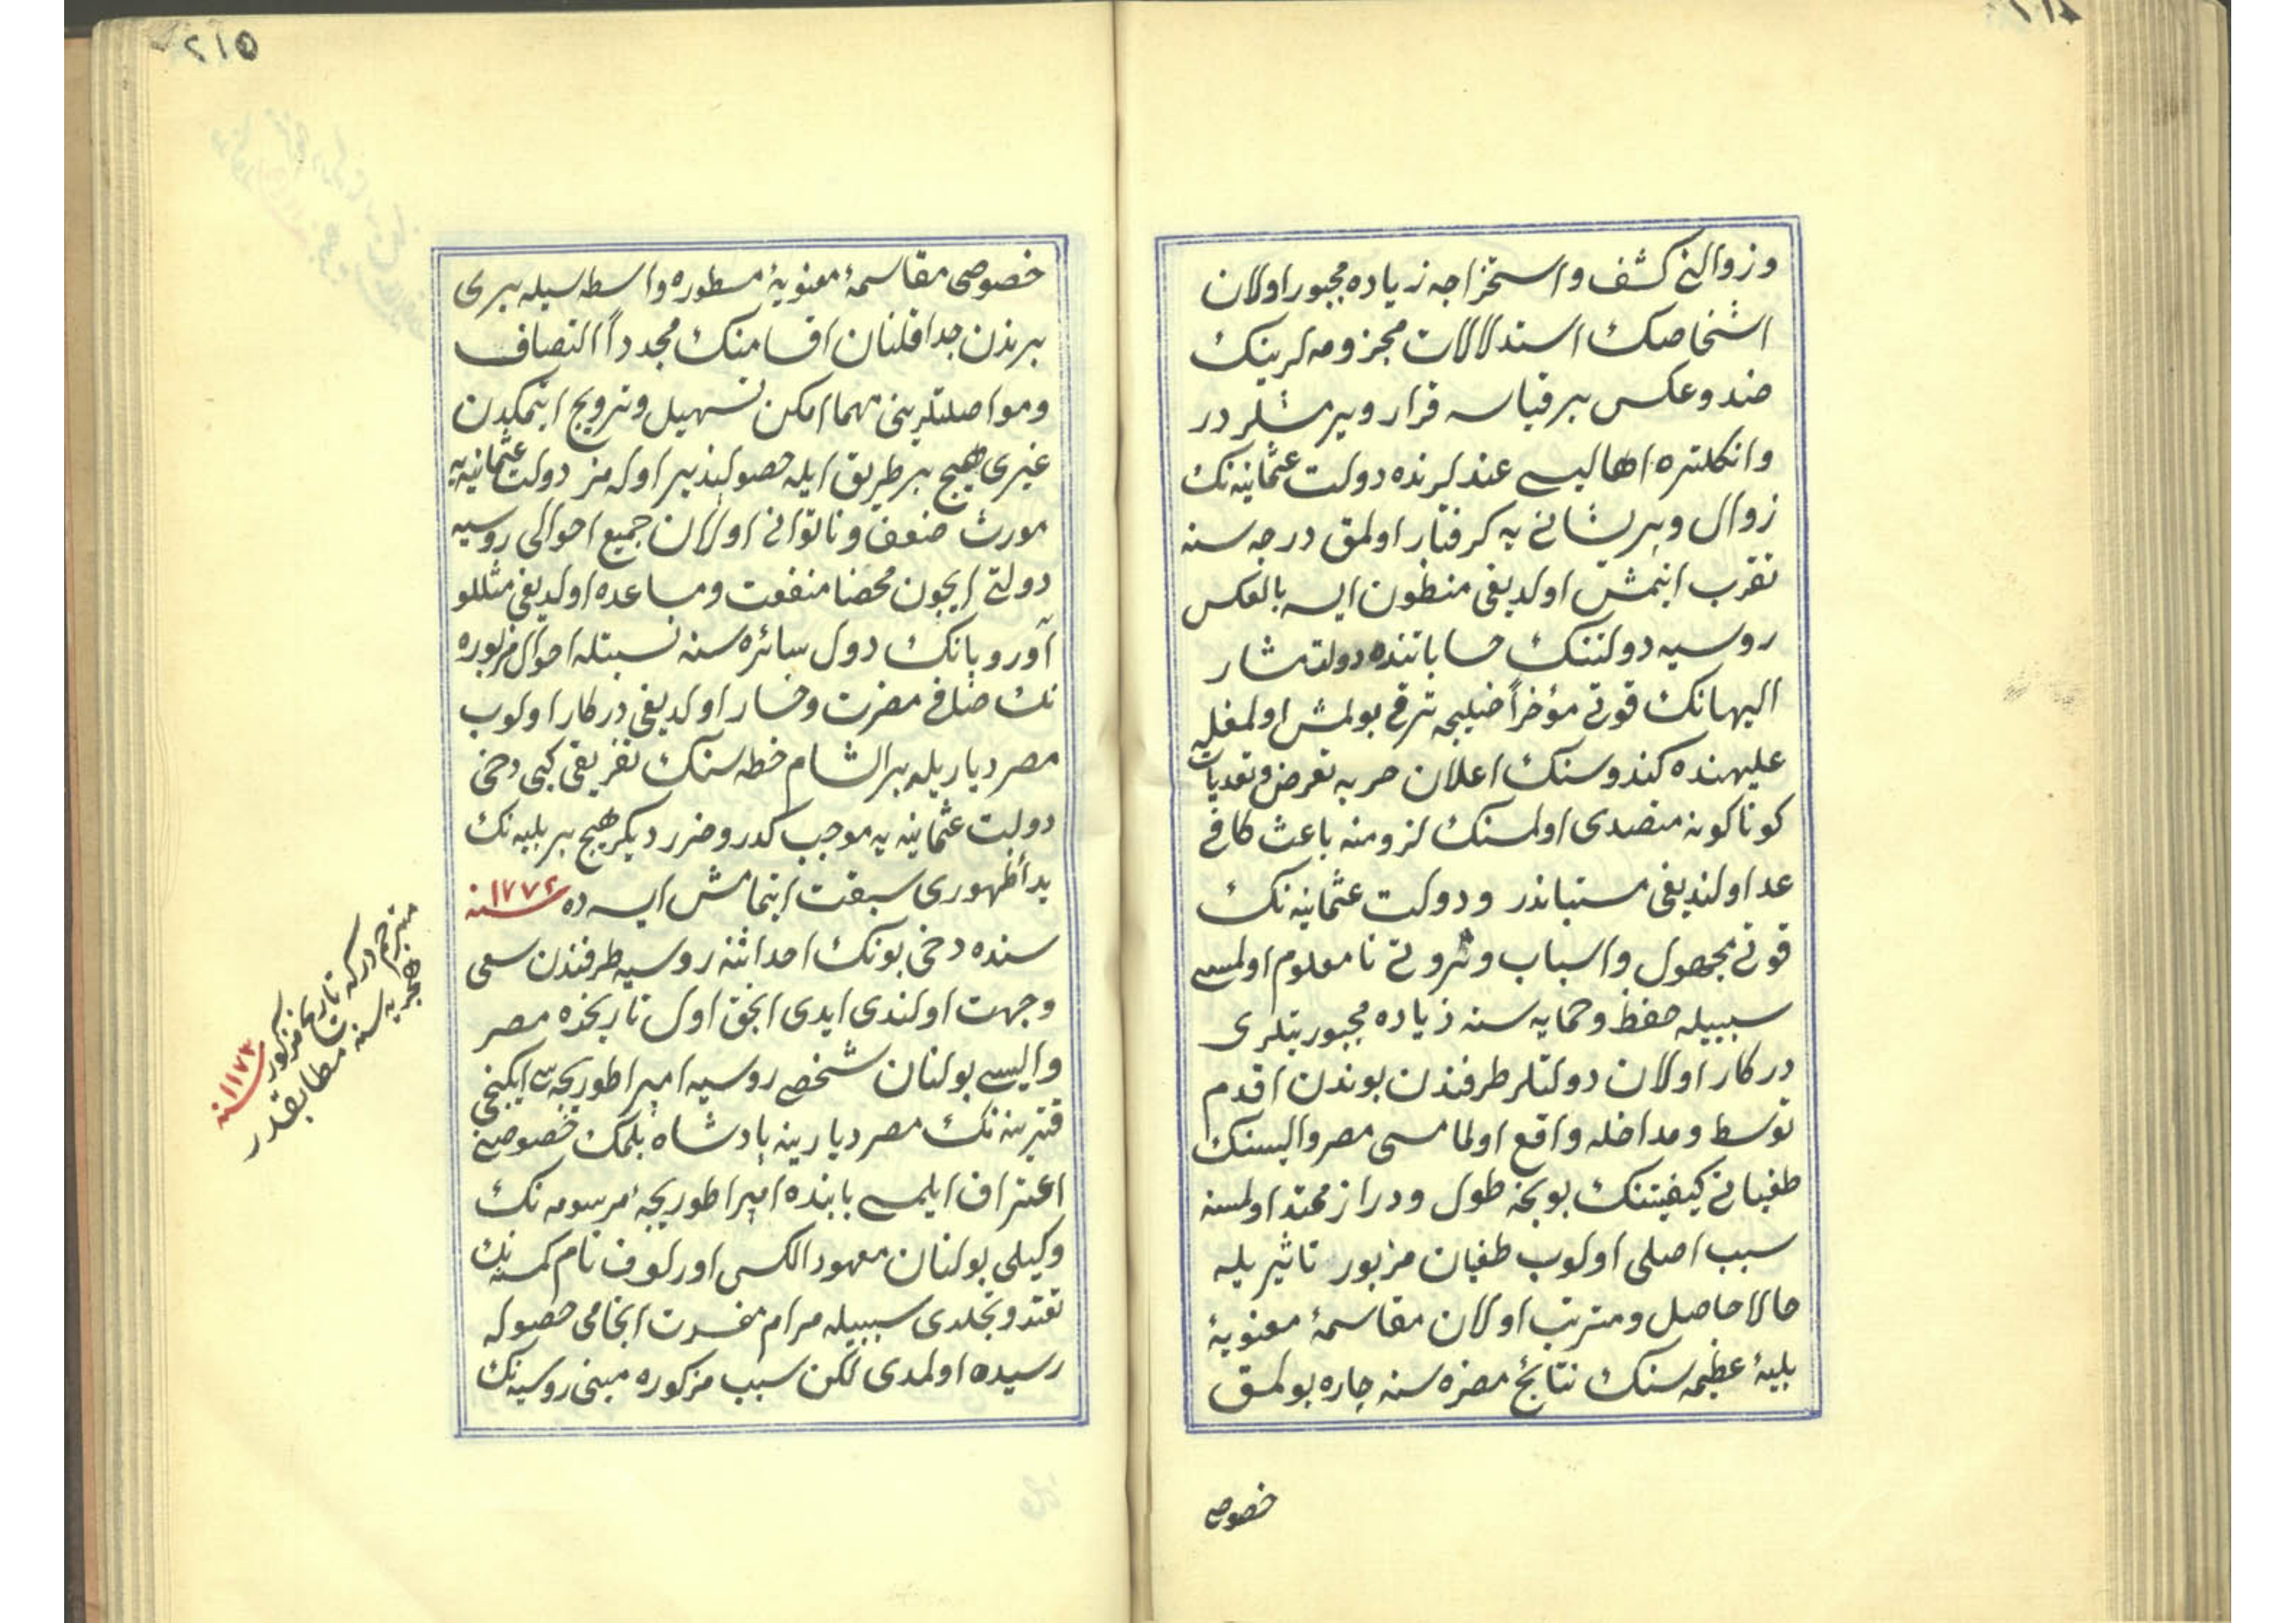 وزوالنی كشف واستخراجه زیاده مجبور اولان
اشخاصك استدلالات مجزومه لرینك
ضد وعكس بر قیاسه قرار ویرمشلر در
وانكلتره اهالیسی عندلرنده دولت عثمانیه نك
زوال وپریشانی یه كرفتار اولمق درجه سنه
تقرب ایتمش اولدیغی مظنون ایسه بالعكس
روسیه دولتنك حساباتنده دولت مشار
الیهانك قوتی مؤخراً خیلیجه ترقی بولمش اولمغله
علیهنده كندوسنك اعلان حربه تعرض وتعدیات
كوناكونه متصدی اولمسنك لزومنه باعث كافی
عد اولندیغی مستباندر ودولت عثمانیه نك
قوتی مجهول واسباب وثروتی نامعلوم اولمسی
سببیله حفظ وحمایه سنه زیاده مجبوریتلری
دركار اولان دولتلر طرفندن بوندن اقدم
توسط ومداخله واقع اولمامسی مصر والیسنك
طغیانی كیفیتنك بوبخه طول ودراز ممتد اولمسنه
سبب اصلی اولوب طغیان مزبور تاثیریله
حالا حاصل ومترتب اولان مقاسمۀ معنویۀ
بلیۀ عظیمه سنك نتائج مضره سنه چاره بولمق
خصوصی
٢١٥
خصوصی مقاسمۀ معنویۀ مسطوره واسطه سیله بری
برندن جدا قلنان اقسامنك مجدداً التصاق
ومواصلتلرینی مهما امكن تسهیل وترویج ایتمكدن
غیری هیچ بر طریق ایله حصولپذیر اوله مز دولت عثمانیه یه
مورث ضعف وناتوانی اولان جمیع احوالی روسیه
دولتی ایچون محضا منفعت ومساعده اولدیغی مثللو
آوروپانك دول سائره سنه نسبتله احوال مزبوره
نك صافی مضرت وخسار اولدیغی دركار اولوب
مصر دیاریله بر الشام خطه سنك تفریقی كبی دخی
دولت عثمانیه یه موجب كدر وضرر دیكر هیچ بر بلیه نك
بدأ ظهوری سبقت ایتمامش ایسه ده سنه ١٧٧٢
سنده دخی بونك احداثنه روسیه طرفندن سعی
وجهت اولندی ایدی انجق اول تاریخده مصر
والیسی بولنان شخصی روسیه امپراطوریچه سی ایكنجی
قترینه نك مصر دیارینه پادشاه بلمك خصوصنی
اعتراف ایلمسی بابنده امپراطوریچۀ مرسومه نك
وكیلی بولنان معهود الكس اورلوف نام كمسنه نك
تفتد وتجلدی سببیله مرام مفسدت انجامی حصوله
رسیده اولمدی لكن سبب مزكوره مبنی روسیه نك
مترجم دركه تاریخ مزكور سنه ١١٧٢
هجریه سنه سنه مطابقدر